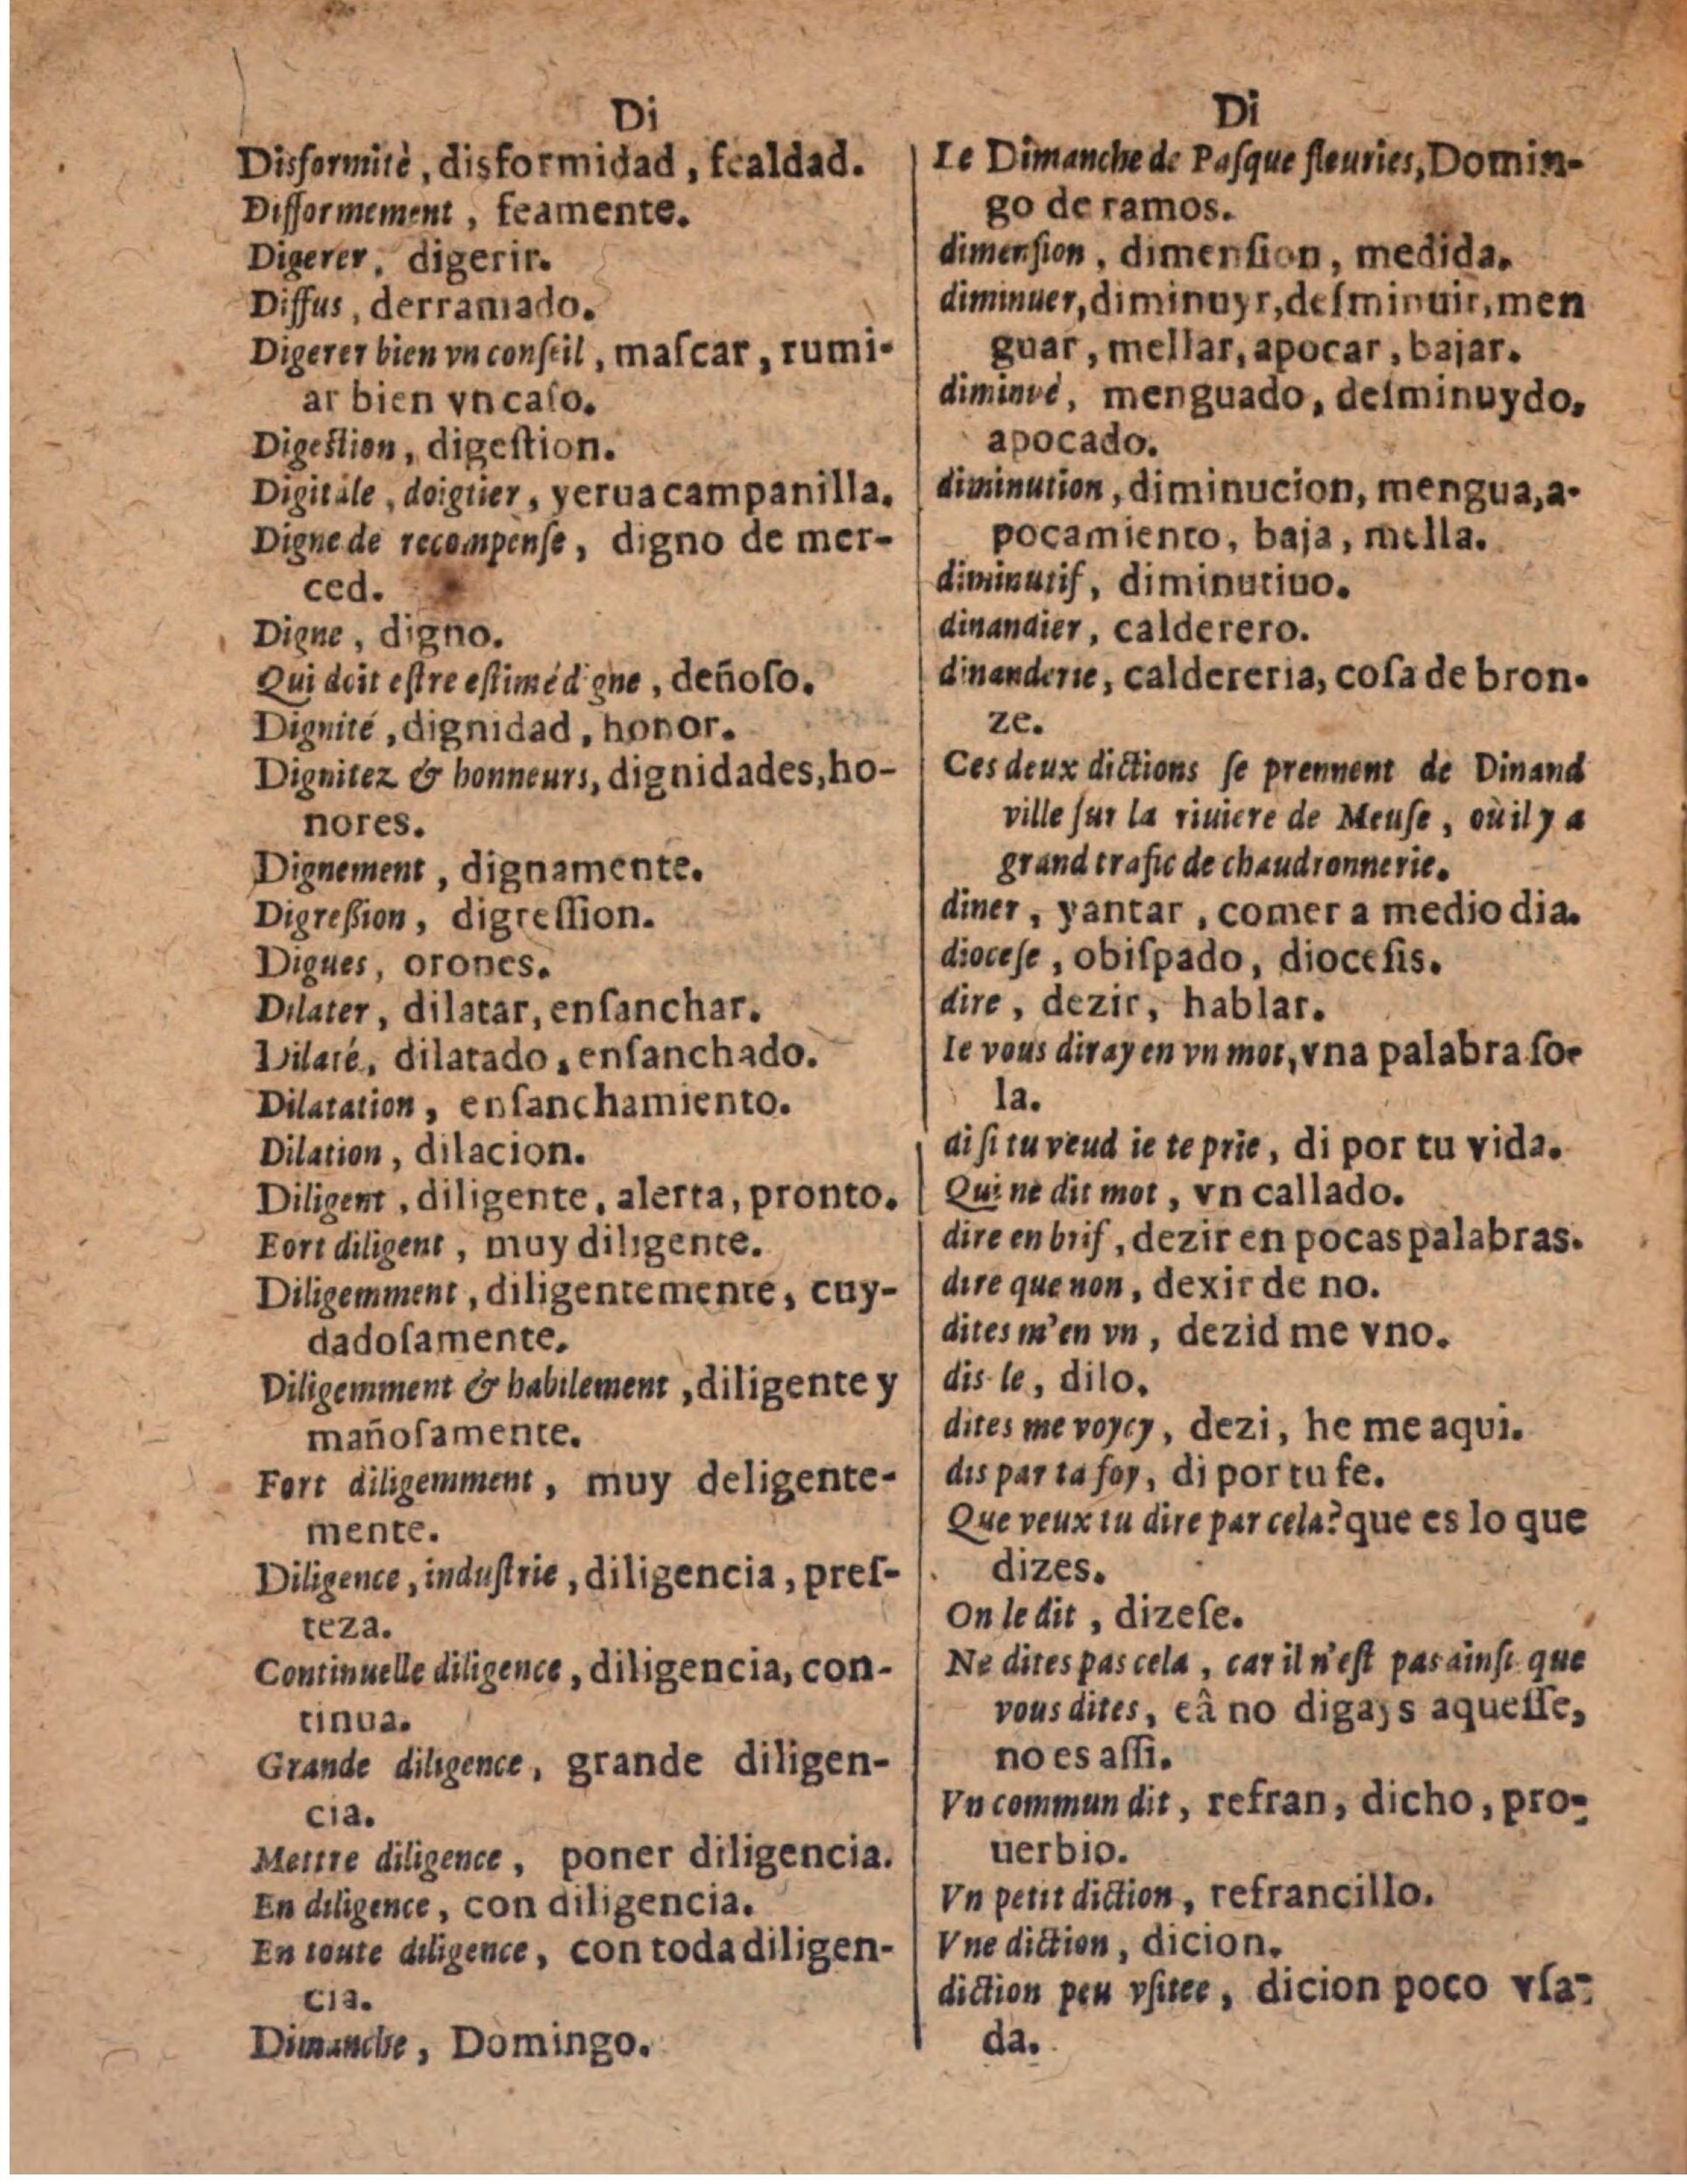 Di
Disformitè, disformidad, fealdad.
Difformement, feamente.
Digerer, digerir.
Diffus, derramado.
Digerer bien vn conſeil, maſcar, rumi-
ar bien vn caſo.
Digeſtion, digeſtion.
Digitale, doigtier, yerua campanilla.
Digne de recompenſe, digno de mer-
ced.
Digne, digno.
Qui doit eſtre eſtimé digne, deñoſo.
Dignité, dignidad, honor.
Dignitez & honneurs, dignidades, ho-
nores.
Dignement, dignamente.
Digreßion, digreſſion.
Digues, orones.
Dilater, dilatar, enſanchar.
Dilaté, dilatado, enſanchado.
Dilatation, enſanchamiento.
Dilation, dilacion.
Diligent, diligente, alerta, pronto.
Fort diligent, muy diligente.
Diligemment, diligentemente, cuy-
dadoſamente.
Diligemment & habilement, diligente y
mañoſamente.
Fort diligemment, muy deligente-
mente.
Diligence, induſtrie, diligencia, preſ-
teza.
Continuelle diligence, diligencia, con-
tinua.
Grande diligence, grande diligen-
cia.
Mettre diligence, poner diligencia.
En diligence, con diligencia.
En toute diligence, con toda diligen-
cia.
Dimanche, Domingo.
Di
Le Dimanche de Paſque fleuries, Domin-
go de ramos.
dimenſion, dimenſion, medida.
diminuer, diminuyr, deſminuir, men
guar, mellar, apocar, bajar.
diminvé, menguado, deſminuydo,
apocado.
diminution, diminucion, mengua, a-
pocamiento, baja, mella.
diminutif, diminutiuo.
dinandier, calderero.
dinanderie, caldereria, coſa de bron-
ze.
Ces deux dictions ſe prennent de Dinand
ville ſur la riuiere de Meuſe, où il y a
grand trafic de chaudronnerie.
diner, yantar, comer a medio dia.
dioceſe, obiſpado, dioceſis.
dire, dezir, hablar.
Ie vous diray en vn mot, vna palabra ſo-
la.
di ſi tu veud ie te prie, di por tu vida.
Qui ne dit mot, vn callado.
dire en brif, dezir en pocas palabras.
dire que non, dexir de no.
dites m'en vn, dezid me vno.
dis-le, dilo.
dites me voycy, dezi, he me aqui.
dis par ta foy, di por tu fe.
Que veux tu dire par cela? que es lo que
dizes.
On le dit, dizeſe.
Ne dites pas cela, car il n'eſt pas ainſi que
vous dites, eâ no digays aqueſſe,
no es aſſi.
Vn commun dit, refran, dicho, pro-
uerbio.
Vn petit diction, refrancillo.
Vne diction, dicion.
diction peu vſitee, dicion poco vſa-
da.